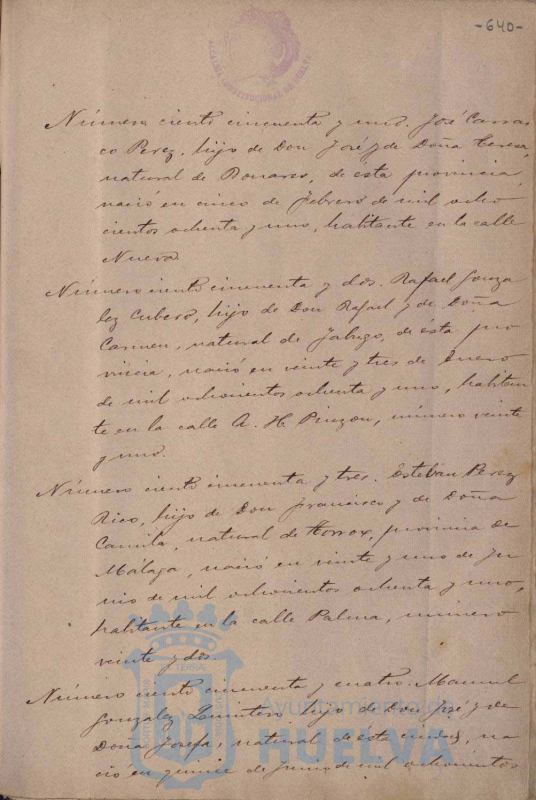 -640-
ALCALDIA CONSTITUCIONAL DE HUELVA
Número ciento cincuenta y uno. José Carras
co Perez, hijo de Don José y de Doña Teresa,
natural de Bonares, de ésta provincia,
nació en cinco de Febrero de mil ocho
cientos ochenta y uno, habitante en la calle
Nueva.
Número ciento cincuenta y dos. Rafael Gonza
lez Cubero, hijo de Don Rafael y de Doña
Carmen, natural de Jabugo, de ésta pro
vincia, nació en veinte y tres de Enero
de mil ochocientos ochenta y uno, habitan
te en la calle A. H. Pinzon, número veinte
y uno.
Número ciento cincuenta y tres. Esteban Perez
Rico, hijo de Don Francisco y de Doña
Camila, natural de Torrox, provincia de
Málaga, nació en veinte y uno de Ju
nio de mil ochocientos ochenta y uno,
habitante en la calle Palma, número
veinte y dos.
Número ciento cincuenta y cuatro. Manuel
Gonzalez Quintero, hijo de Don José y de
Doña Josefa, natural de ésta ciudad, na
ció en quince de Junio de mil ochocientos
Ayuntamiento de
HUELVA